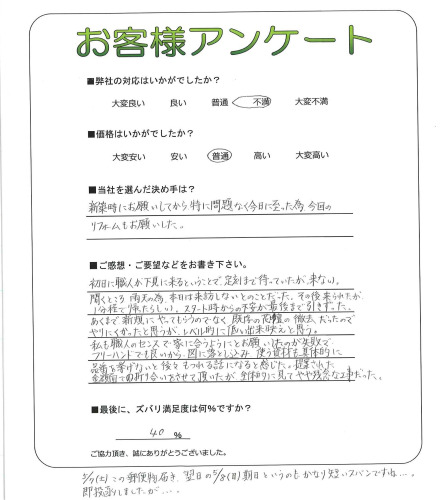 お客様アンケート
■弊社の対応はいかがでしたか？
大変良い　良い　普通　不満　大変不満
■価格はいかがでしたか？
大変安い　安い　普通　高い　大変高い
■当社を選んだ決め手は？
新築時にお願いしてから特に問題なく今日に至った為、今回の
リフォームもお願いした。
■ご感想・ご要望などをお書き下さい。
初日に職人が下見に来るということで、定刻まで待っていたが、来ない。
聞くところ、雨天の為、本日は来訪しないとのことだった。その後来られたが、
1分程で帰たらしい。スタート時からの不安が最後まで引きずった。
あくまで新規にやってもらうのでなく、既存の花壇の撤去だったので
やりにくかったと思うが、レベル的に低い出来映えと思う。
私も職人のセンスで家に合うようにとお願いしたのが失敗で
フリーハンドでも良いから、図に落とし込み、使う資材も具体的に
品番を挙げないと後々もつれる話になると感じた。提案された
金額面での折り合いをさせて頂いたが、全体的に見てやや残念な工事だった。
■最後に、ズバリ満足度は何％ですか？
40 ％
ご協力頂き、誠にありがとうございました。
5/7(土)この郵便物届き、翌日の5/8(日)期日というのもかなり短いスパンですね…。
即投函しましたが…。